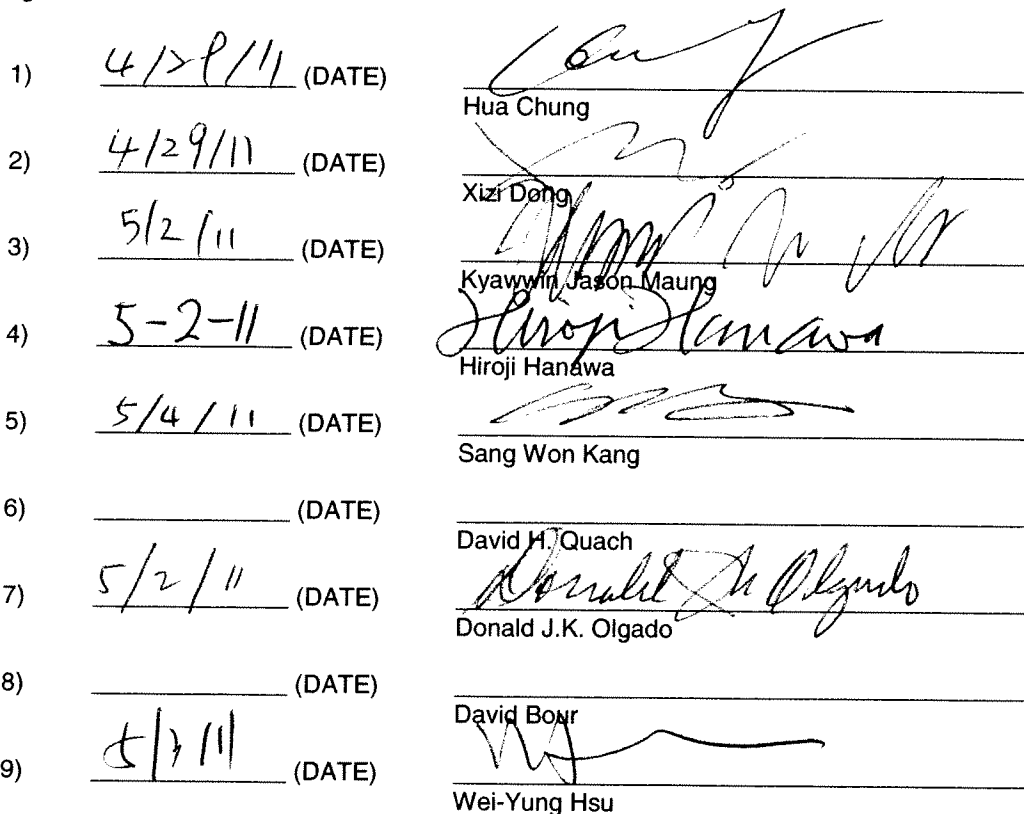 1) (DATE)
Hua Chung
2) 4/29/11 (DATE)
Xizi Dong
3) 5/2/11 (DATE)
Kyawwin Jason Maung
4) 5-2-11 (DATE) Hiroji Hanawa
Hiroji Hanawa
5) 5/4/11 (DATE)
Sang Won Kang
6) (DATE)
David H. Quach
7) 5/2/11 (DATE) Donald Olgado
Donald J.K. Olgado
8) (DATE)
David Bour
9) (DATE)
Wei-Yung Hsu